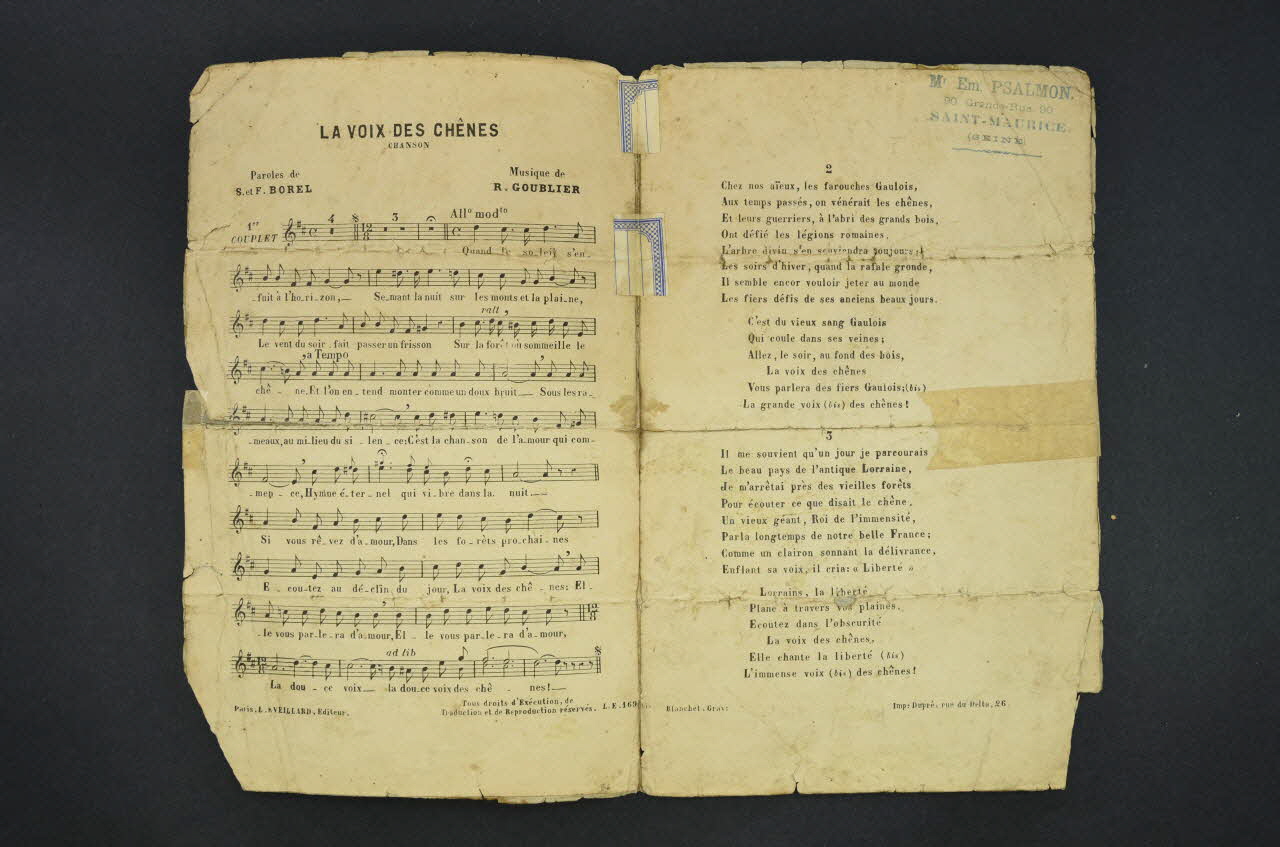 LA VOIX DES CHÊNES
CHANSON
Paroles de
S. et F. BOREL
Musique de
R. GOUBLIER
1er
COUPLET
4
3
Allo modto
Quand le so_leil s'en_
_fuit à l'ho_ri_zon,_ Se_mant la nuit sur les monts et la plai_ne,
rall
Le vent du soir fait passer un frisson Sur la forêt où sommeille le
a Tempo
chê_ne. Et l'on en_tend monter comme un doux bruit_ Sous les ra_
_meaux, au mi_lieu du si_len_ce: C'est la chan_son de l'a_mour qui com_
_men_ce, Hymne é_ter_nel qui vi_bre dans la nuit_
Si vous rê_vez d'a_mour, Dans les fo_rêts pro_chai_nes
E_cou_tez au dé_clin du jour, La voix des chê_nes; El_
_le vous par_le_ra d'a_mour, El_le vous par_le_ra d'a_mour,
ad lib
La dou_ce voix_ la dou_ce voix des chê_nes!_
Paris, L. EVEILLARD, Editeur.
Tous droits d'Exécution, de
Traduction et de Reproduction réservés.
Mr Em. PSALMON.
90 Grande-Rue 90
SAINT-MAURICE
(SEINE)
2
Chez nos aïeux, les farouches Gaulois,
Aux temps passés, on vénérait les chênes,
Et leurs guerriers, à l'abri des grands bois,
Ont défié les légions romaines.
L'arbre divin s'en souviendra toujours;
Les soirs d'hiver, quand la rafale gronde,
Il semble encor vouloir jeter au monde
Les fiers défis de ses anciens beaux jours.
C'est du vieux sang Gaulois
Qui coule dans ses veines;
Allez, le soir, au fond des bois,
La voix des chênes
Vous parlera des fiers Gaulois; (bis)
La grande voix (bis) des chênes!
3
Il me souvient qu'un jour je parcourais
Le beau pays de l'antique Lorraine,
Je m'arrêtai près des vieilles forêts
Pour écouter ce que disait le chêne.
Un vieux géant, Roi de l'immensité,
Parla longtemps de notre belle France;
Comme un clairon sonnant la délivrance,
Enflant sa voix, il cria: « Liberté »
Lorrains, la liberté
Plane à travers vos plaines.
Ecoutez dans l'obscurité
La voix des chênes.
Elle chante la liberté (bis)
L'immense voix (bis) des chênes!
Blanchet, Grav:
Imp: Dupré, rue du Delta, 26.